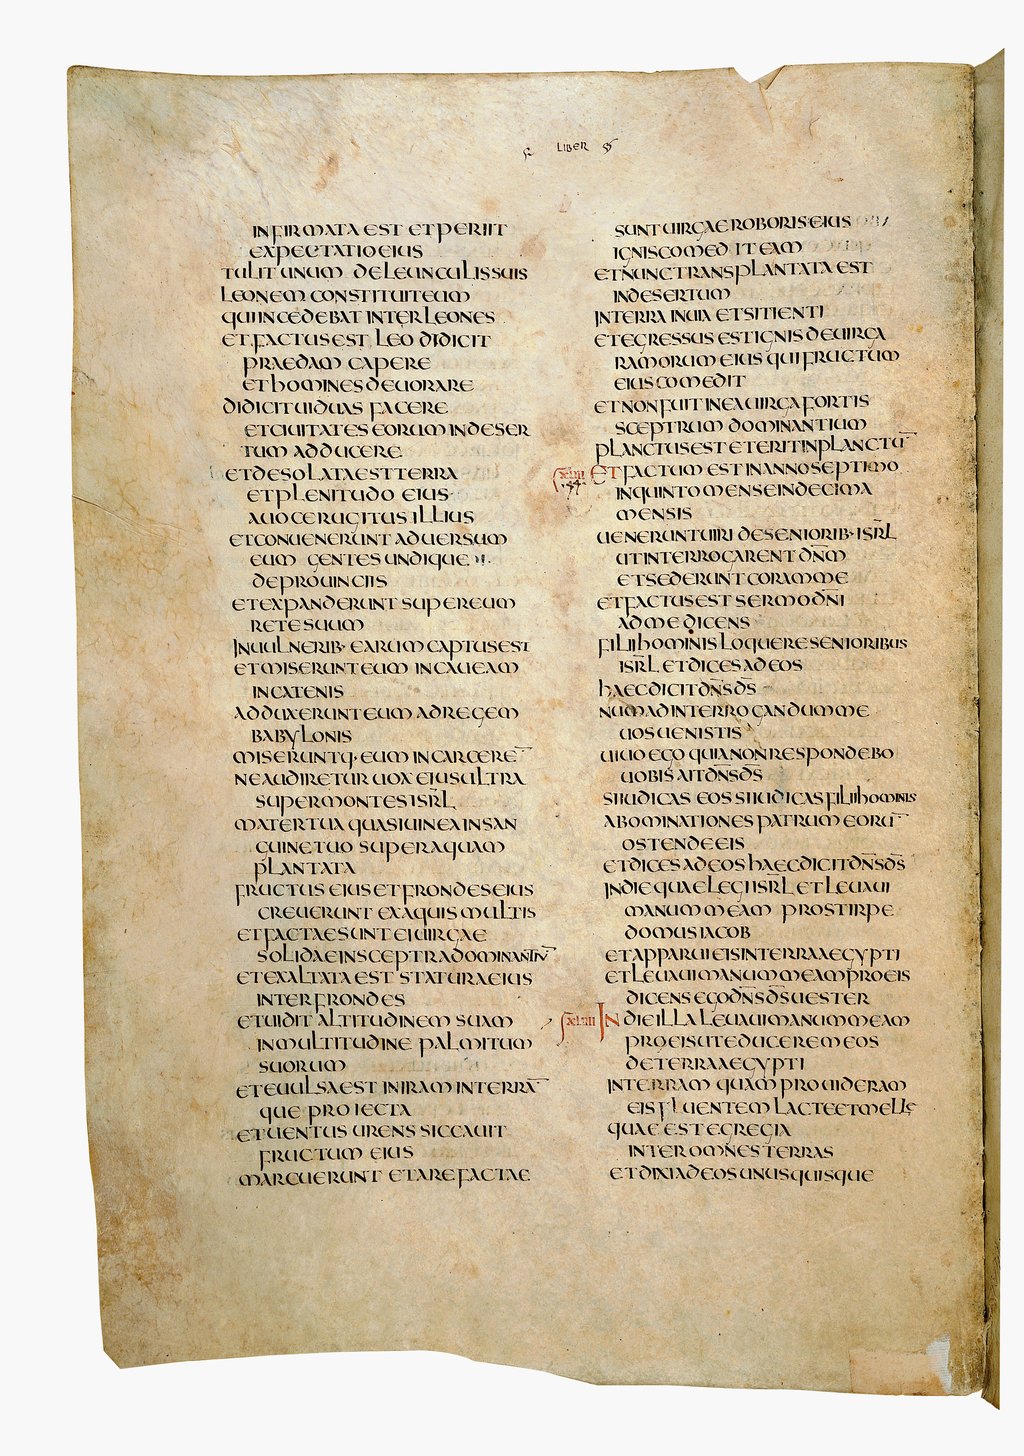 LIBER
INFIRMATA EST ET PERIIT
EXPECTATIO EIUS
TULIT UNUM DE LEUNCULIS SUIS
LEONEM CONSTITUIT EUM
QUI INCEDEBAT INTER LEONES
ET FACTUS EST LEO DIDICIT
PRAEDAM CAPERE
ET HOMINES DEUORARE
DIDICIT UIDUAS FACERE
ET CIUITATES EORUM IN DESER
TUM ADDUCERE
ET DESOLATA EST TERRA
ET PLENITUDO EIUS
A UOCE RUGITUS ILLIUS
ET CONUENERUNT ADUERSUM
EUM GENTES UNDIQUE
DE PROUINCIIS
ET EXPANDERUNT SUPER EUM
RETE SUUM
IN UULNERIB· EARUM CAPTUS EST
ET MISERUNT EUM IN CAUEAM
IN CATENIS
ADDUXERUNT EUM AD REGEM
BABYLONIS
MISERUNTQ· EUM IN CARCERE̅
NE AUDIRETUR UOX EIUS ULTRA
SUPER MONTES ISR̅L
MATER TUA QUASI UINEA IN SAN
GUINE TUO SUPER AQUAM
PLANTATA
FRUCTUS EIUS ET FRONDES EIUS
CREUERUNT EX AQUIS MULTIS
ET FACTAE SUNT EI UIRGAE
SOLIDAE IN SCEPTRA DOMINANTIU̅
ET EXALTATA EST STATURA EIUS
INTER FRONDES
ET UIDIT ALTITUDINEM SUAM
IN MULTITUDINE PALMITUM
SUORUM
ET EUULSA EST IN IRAM IN TERRA̅
QUE PROIECTA
ET UENTUS URENS SICCAUIT
FRUCTUM EIUS
MARCUERUNT ET AREFACTAE
SUNT UIRGAE ROBORIS EIUS
IGNIS COMEDIT EAM
ET NUNC TRANSPLANTATA EST
IN DESERTUM
IN TERRA INUIA ET SITIENTI
ET EGRESSUS EST IGNIS DE UIRGA
RAMORUM EIUS QUI FRUCTUM
EIUS COMEDIT
ET NON FUIT IN EA UIRGA FORTIS
SCEPTRUM DOMINANTIUM
PLANCTUS EST ET ERIT IN PLANCTU̅
ET FACTUM EST IN ANNO SEPTIMO
IN QUINTO MENSE IN DECIMA
MENSIS
UENERUNT UIRI DE SENIORIB· ISR̅L
UT INTERROGARENT DN̅M
ET SEDERUNT CORAM ME
ET FACTUS EST SERMO DN̅I
AD ME DICENS
FILI HOMINIS LOQUERE SENIORIBUS
ISR̅L ET DICES AD EOS
HAEC DICIT DN̅S DS̅
NUM AD INTERROGANDUM ME
UOS UENISTIS
UIUO EGO QUIA NON RESPONDEBO
UOBIS AIT DN̅S DS̅
SI IUDICAS EOS SI IUDICAS FILI HOMINIS
ABOMINATIONES PATRUM EORU̅
OSTENDE EIS
ET DICES AD EOS HAEC DICIT DN̅S DS̅
IN DIE QUA ELEGI ISR̅L ET LEUAUI
MANUM MEAM PRO STIRPE
DOMUS IACOB
ET APPARUI EIS IN TERRA AEGYPTI
ET LEUAUI MANUM MEAM PRO EIS
DICENS EGO DN̅S DS̅ UESTER
IN DIE ILLA LEUAUI MANUM MEAM
PRO EIS UT EDUCEREM EOS
DE TERRA AEGYPTI
IN TERRAM QUAM PROUIDERAM
EIS FLUENTEM LACTE ET MELLE
QUAE EST EGREGIA
INTER OMNES TERRAS
ET DIXI AD EOS UNUSQUISQUE